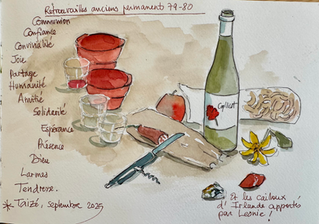 Retrouvailles anciens permanents 79-80
Communion
Confiance
Convivialité
Joie
Partage
Humanité
Amitié
Solidarité
Espérance
Présence
Dieu
Larmes
Tendresse.
* Taizé, septembre 2025
Et les cailloux
d'Irlande apportés
par Leonie !